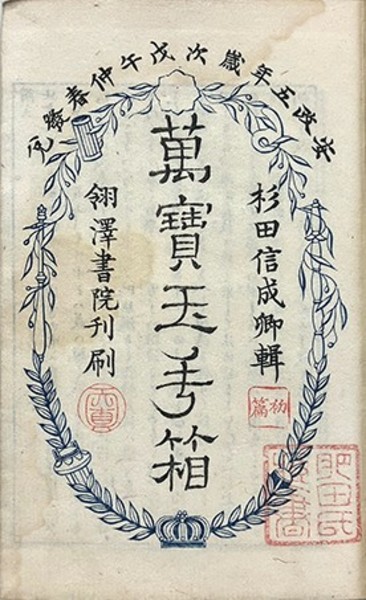 安政五年歲次戊午仲春發兌
杉田信成卿輯
初篇
萬寶玉手箱
翎澤書院刊刷
天真
肥田氏